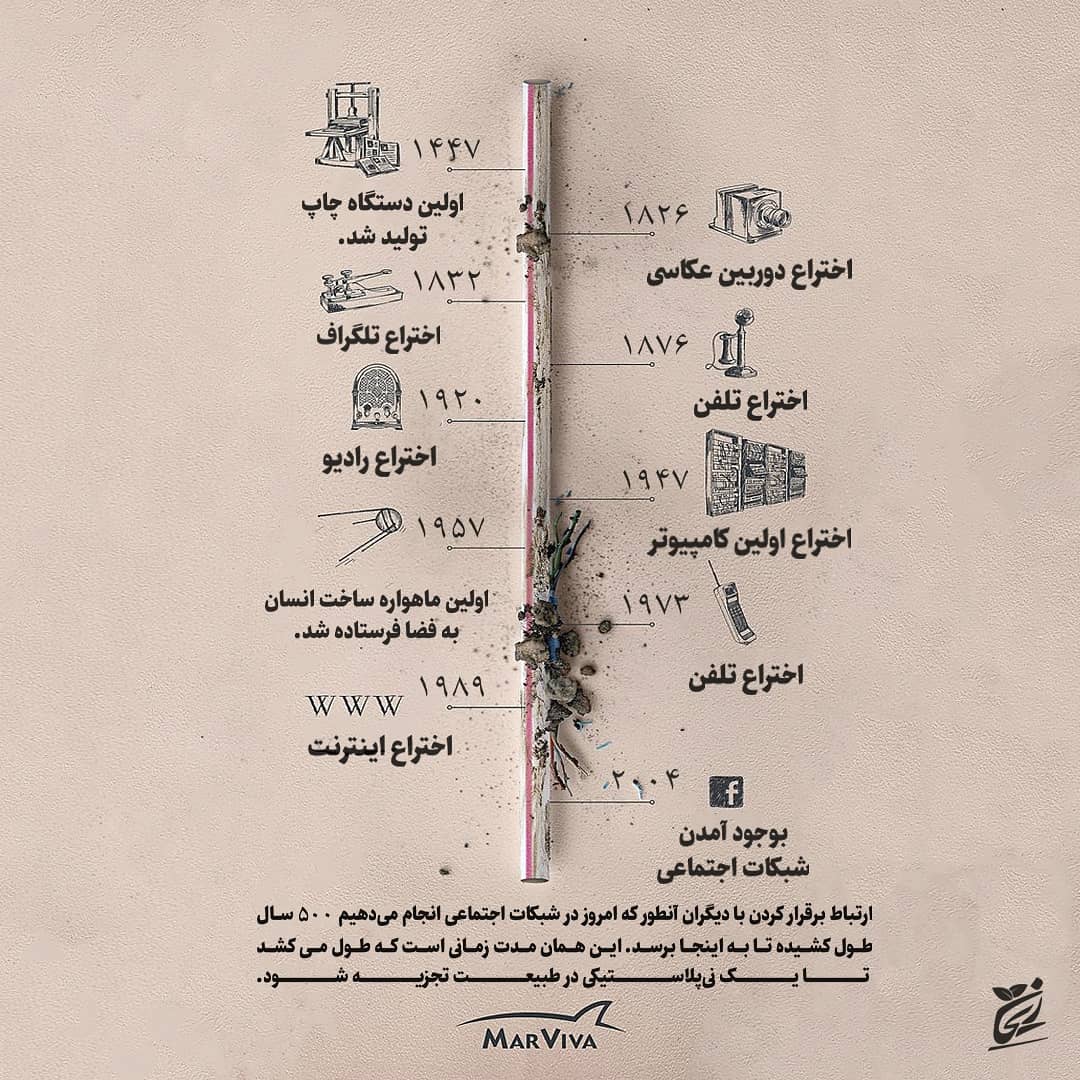 ۱۴۴۷
اولین دستگاه چاپ
تولید شد.
۱۸۲۶
اختراع دوربین عکاسی
۱۸۳۲
اختراع تلگراف
۱۸۷۶
اختراع تلفن
۱۹۲۰
اختراع رادیو
۱۹۴۷
اختراع اولین کامپیوتر
۱۹۵۷
اولین ماهواره ساخت انسان
به فضا فرستاده شد.
۱۹۷۳
اختراع تلفن
۱۹۸۹
WWW
اختراع اینترنت
۲۰۰۴
f
بوجود آمدن
شبکات اجتماعی
ارتباط برقرار کردن با دیگران آنطور که امروز در شبکات اجتماعی انجام می‌دهیم ۵۰۰ سال
طول کشیده تا به اینجا برسد. این همان مدت زمانی است که طول می کشد
تا یک نی‌پلاستیکی در طبیعت تجزیه شود.
MARVIVA